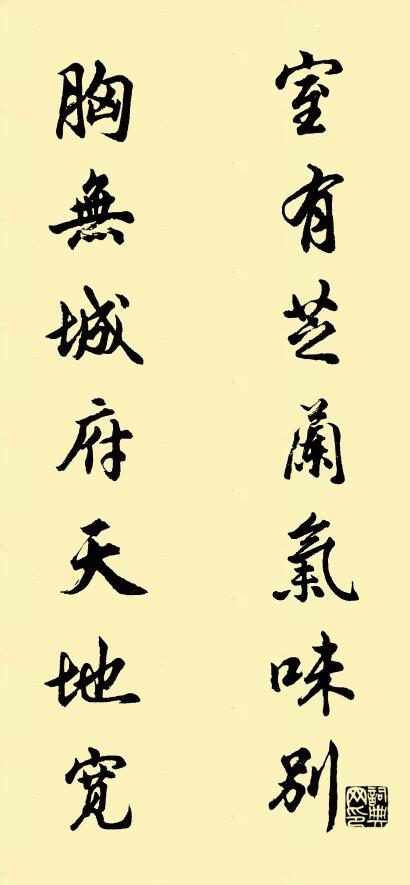 室有芝蘭氣味別
胸無城府天地寬
詞典
网印